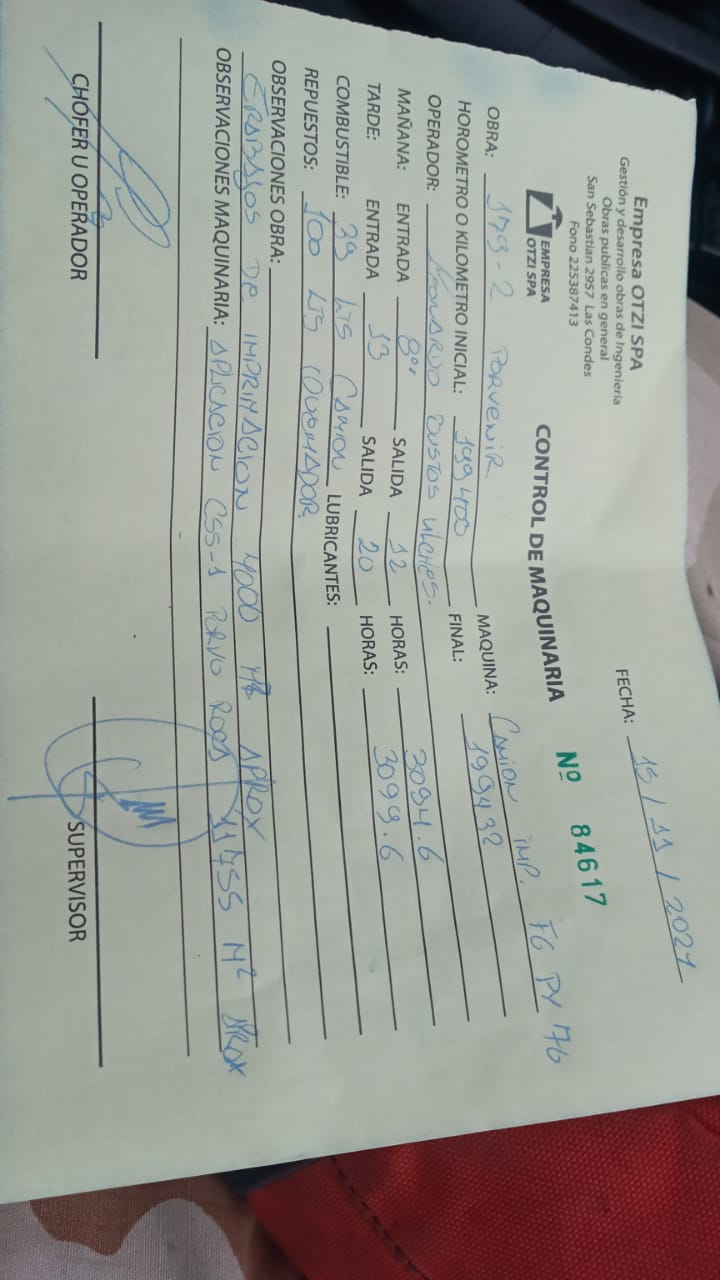 Empresa OTZI SPA
Gestión y desarrollo obras de Ingenieria
Obras publicas en general
San Sebastian 2957 Las Condes
Fono 225387413
EMPRESA
OTZI SPA
FECHA: 15 / 11 / 2021
CONTROL DE MAQUINARIA
Nº 84617
OBRA: 179-2 PORVENIR
MAQUINA: CAMION IMP. FG PY 76
HOROMETRO O KILOMETRO INICIAL: 199400
FINAL: 199432
OPERADOR: LEONARDO BUSTOS VILCHES.
MAÑANA: ENTRADA 8 SALIDA 12 HORAS: 3094.6
TARDE: ENTRADA 13 SALIDA 20 HORAS: 3099.6
COMBUSTIBLE: 39 LTS CAMION LUBRICANTES:
REPUESTOS: 100 LTS QUEMADOR.
OBSERVACIONES OBRA:
TRABAJOS DE IMPRIMACION 4000 M2 APROX
OBSERVACIONES MAQUINARIA: APLICACION CSS-1 PORVO ROCA 11755 M² APROX
CHOFER U OPERADOR
SUPERVISOR